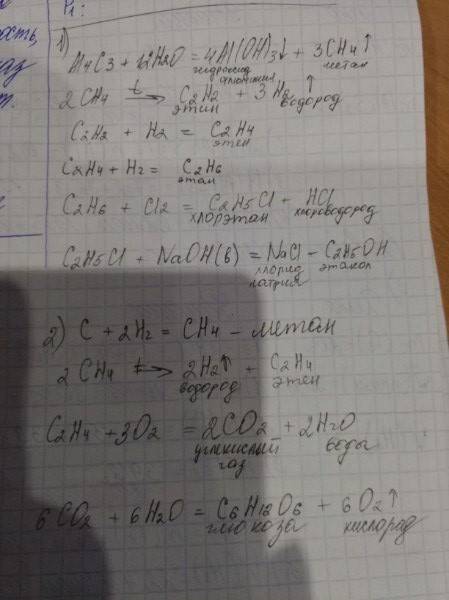 P1:
ость,
аз
т.
1)
Al4C3 + 12H2O = 4Al(OH)3↓ + 3CH4↑
гидроксид алюминия метан
2CH4 t→ C2H2 + 3H2↑
этин водород
C2H2 + H2 = C2H4
этен
C2H4 + H2 = C2H6
этан
C2H6 + Cl2 = C2H5Cl + HCl
хлорэтан хлороводород
C2H5Cl + NaOH(в) = NaCl - C2H5OH
хлорид натрия этанол
2) C + 2H2 = CH4 - метан
2CH4 t→ 2H2↑ + C2H4
водород этен
C2H4 + 3O2 = 2CO2 + 2H2O
углекислый газ воды
6CO2 + 6H2O = C6H12O6 + 6O2↑
глюкоза кислород